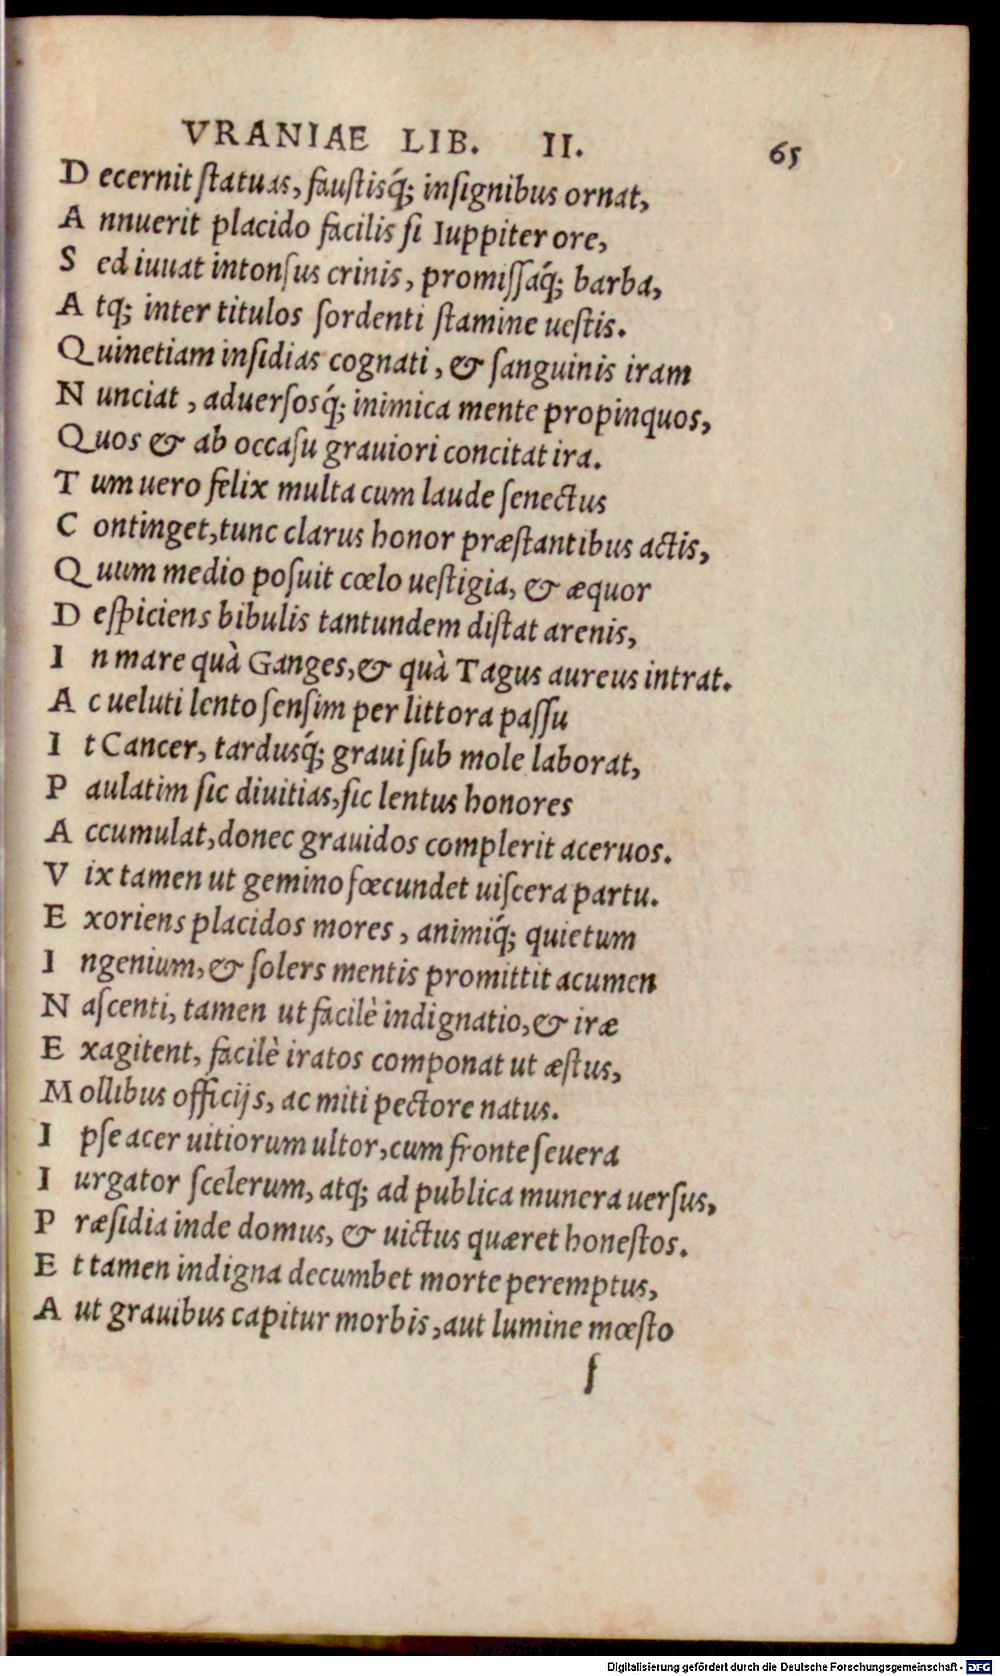 VRANIAE LIB. II. 65
D ecernit ſtatuas, fauſtisq́; inſignibus ornat,
A nnuerit placido facilis ſi Iuppiter ore,
S ed iuuat intonſus crinis, promiſſaq́; barba,
A tq; inter titulos ſordenti ſtamine ueſtis.
Q uinetiam inſidias cognati, & ſanguinis iram
N unciat, aduerſosq́; inimica mente propinquos,
Q uos & ab occaſu grauiori concitat ira.
T um uero felix multa cum laude ſenectus
C ontinget, tunc clarus honor præſtantibus actis,
Q uum medio poſuit cœlo ueſtigia, & æquor
D eſpiciens bibulis tantundem diſtat arenis,
I n mare quà Ganges, & quà Tagus aureus intrat.
A c ueluti lento ſenſim per littora paſſu
I t Cancer, tardusq́; graui ſub mole laborat,
P aulatim ſic diuitias, ſic lentus honores
A ccumulat, donec grauidos complerit aceruos.
V ix tamen ut gemino fœcundet uiſcera partu.
E xoriens placidos mores, animiq́; quietum
I ngenium, & ſolers mentis promittit acumen
N aſcenti, tamen ut facilè indignatio, & iræ
E xagitent, facilè iratos componat ut æſtus,
M ollibus officijs, ac miti pectore natus.
I pſe acer uitiorum ultor, cum fronte ſeuera
I urgator ſcelerum, atq; ad publica munera uerſus,
P ræſidia inde domus, & uictus quæret honeſtos.
E t tamen indigna decumbet morte peremptus,
A ut grauibus capitur morbis, aut lumine mœſto
ſ
Digitalisierung gefördert durch die Deutsche Forschungsgemeinschaft - DFG